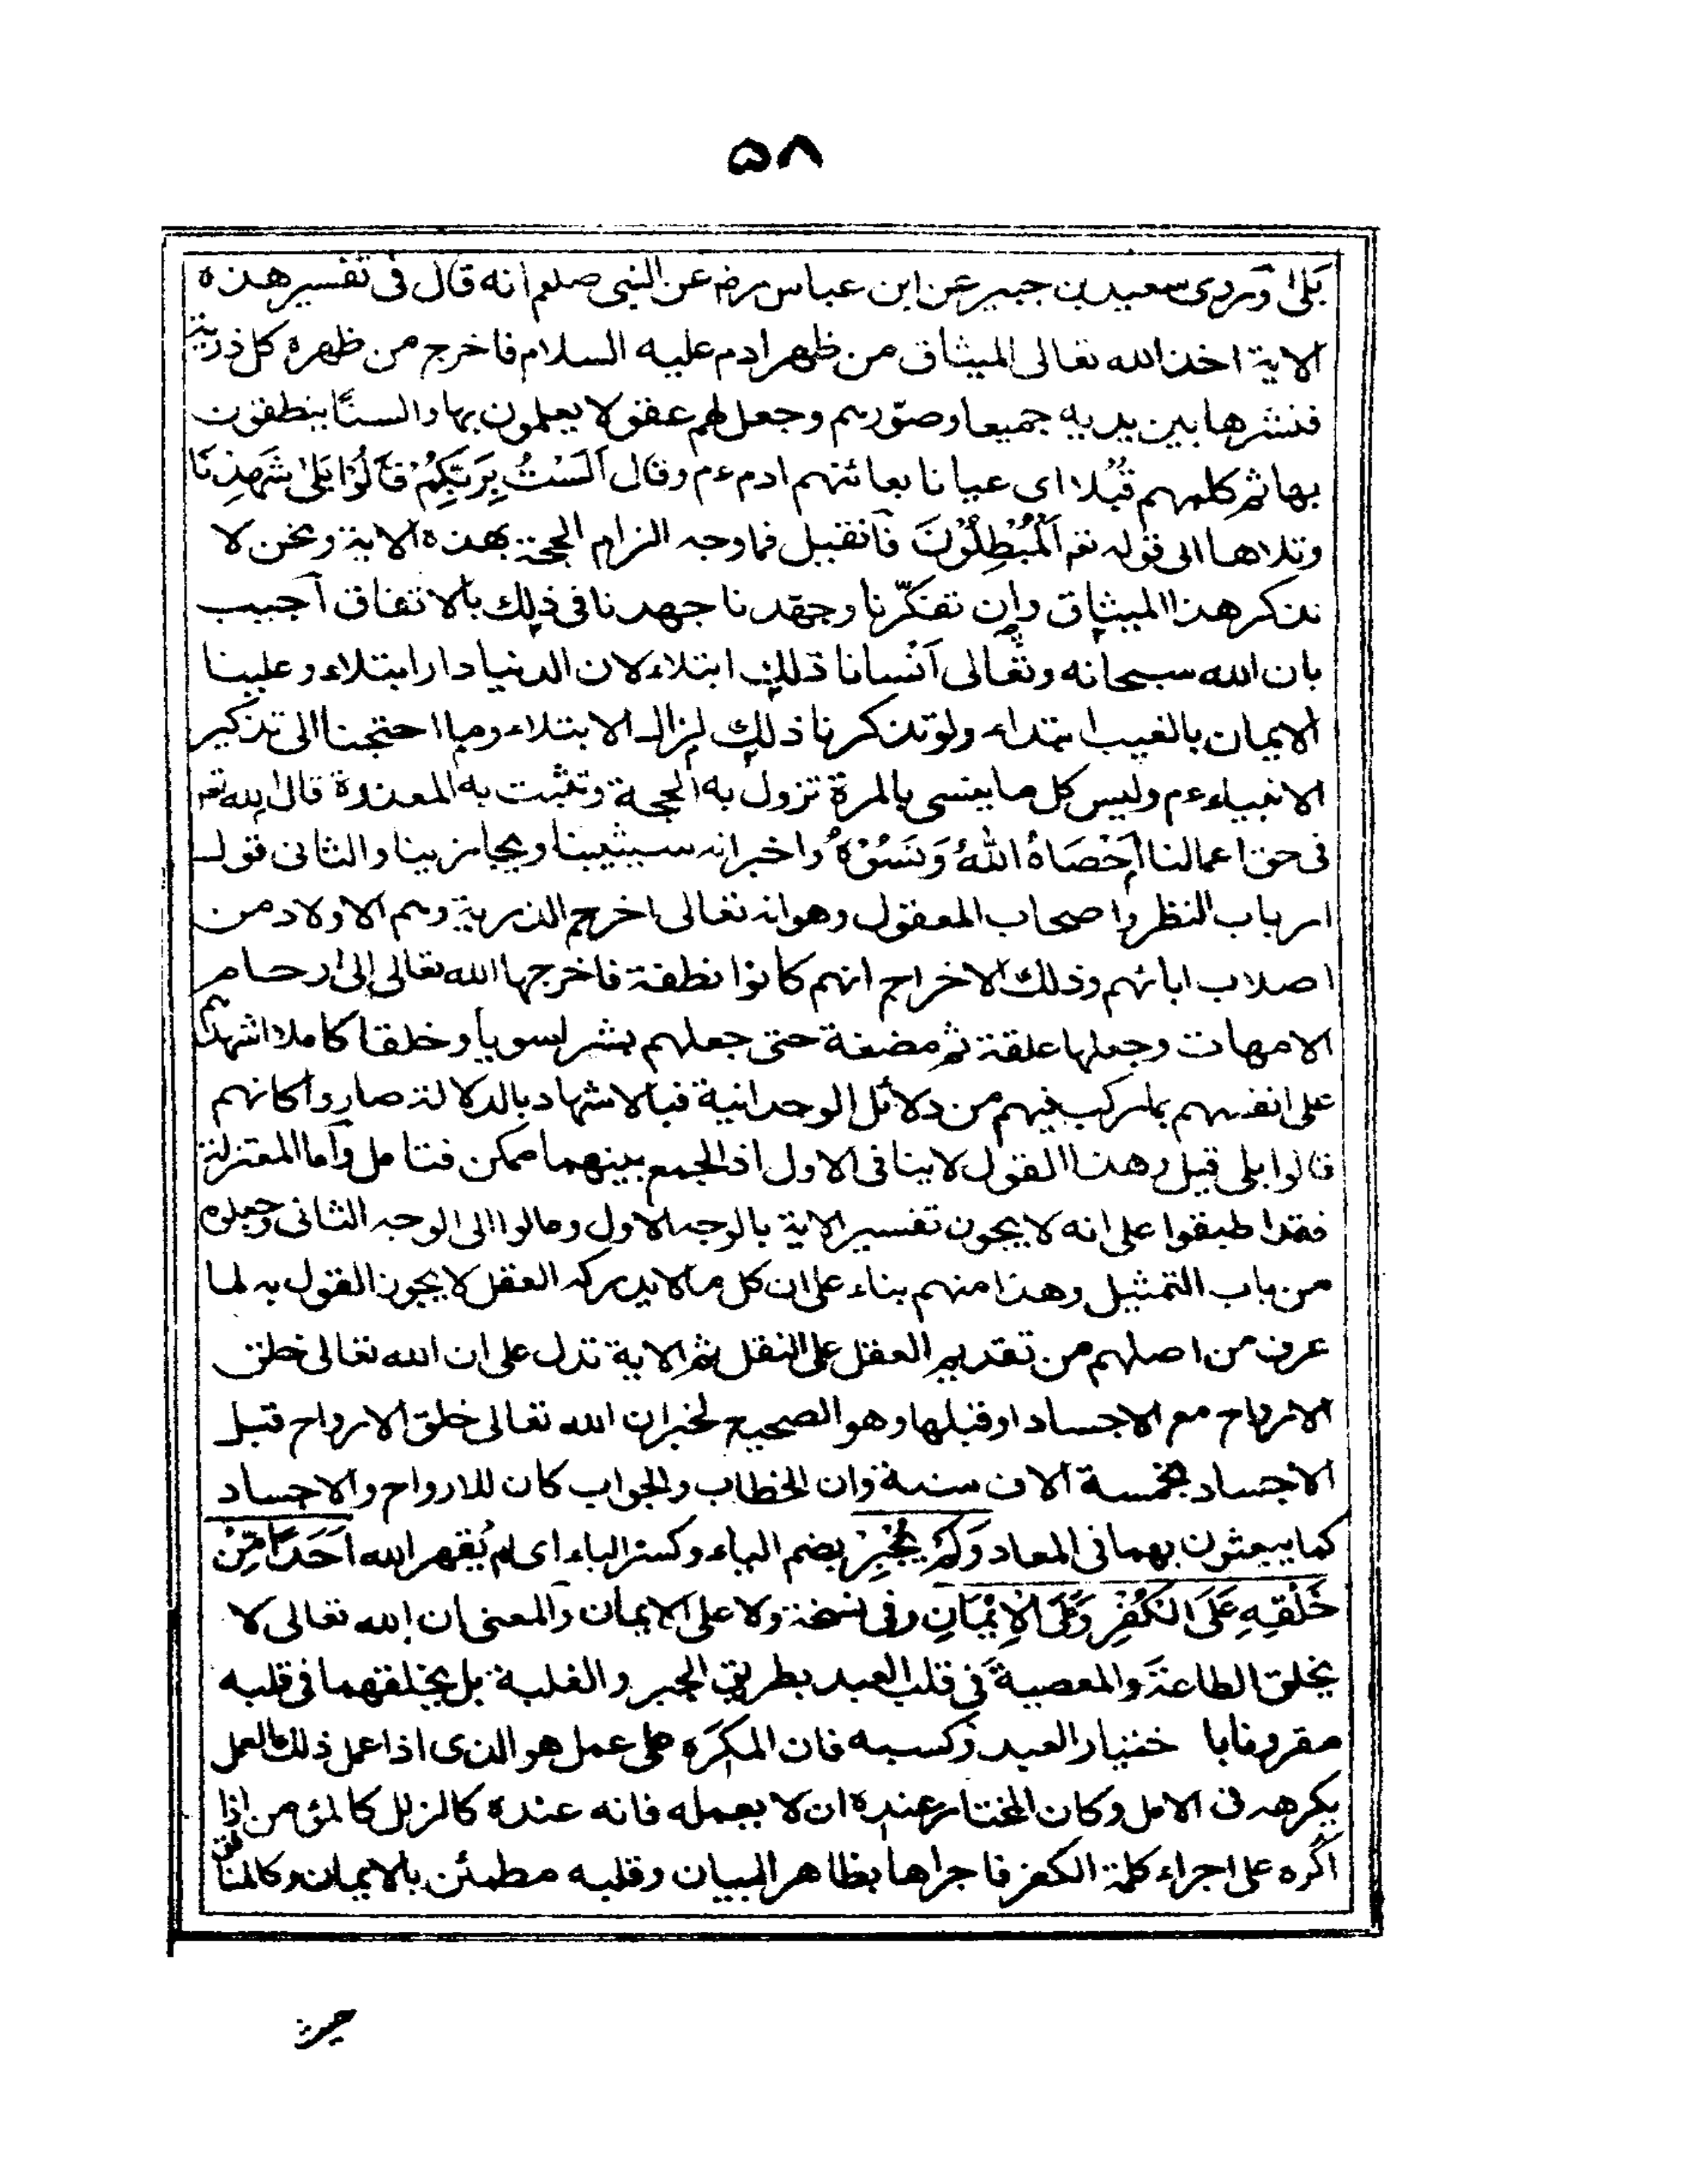 ۵۸
بَلٰى وروى سعيد بن جبير عن ابن عباس رضـ عن النبى صلعم انه قال فى تفسير هذه
الاية اخذ الله تعالى الميثاق من ظهر ادم عليه السلام فاخرج من ظهره كل ذرية
فنشرها بين يديه جميعا وصوّرهم وجعل لهم عقولا يعلمون بها والسنًا ينطقون
بها ثم كلمهم قُبُلا اى عيانا بعائنهم ادم ءم وقال اَلَسْتُ بِرَبِّكُمْ قَالُوْا بَلٰى شَهِدْنَا
وتلاها الى قوله تعـ اَلْمُبْطِلُوْنَ فآن قيل فما وجه الزام الحجة بهذه الاية ونحن لا
نذكر هذا الميثاق وان تفكّرنا وجهدنا جهدنا فى ذلك بالاتفاق آجيب
بان الله سبحانه وتعالى اَنْسانا ذلك ابتلاء لان الدنيا دار ابتلاء وعلينا
الايمان بالغيب ابتداء ولو تذكرنا ذلك لزال الابتلاء وما احتجنا الى تذكير
الانبياء ءم وليس كل ما ينسى بالمرة تزول به الحجة وتثبت به المعذرة قال الله تعـ
فى حق اعمالنا اَحْصَاهُ اللهُ وَنَسُوْهُ واخبر انه سيثيبنا ويجازينا والثانى قول
ارباب النظر واصحاب المعقول وهو انه تعالى اخرج الذرية وهم الاولاد من
اصلاب ابائهم وذلك الاخراج انهم كانوا نطفة فاخرجها الله تعالى الى ارحام
الامهات وجعلها علقة ثم مضغة حتى جعلهم بشرا سويا وخلقا كاملا اشهدهم
على انفسهم بما ركب فيهم من دلائل الوحدانية فبالاشهاد بالدلالة صاروا كانهم
قالوا بلى قيل وهذا القول لا ينافى الاول اذ الجمع بينهما ممكن فتامل وآما المعتزلة
فقد اطبقوا على انه لا يجوز تفسير الاية بالوجه الاول ومالوا الى الوجه الثانى وجعلوه
من باب التمثيل وهذا منهم بناء على ان كل ما لا يدركه العقل لا يجوز القول به لما
عرف من اصلهم من تقديم العقل على النقل ثم الاية تدل على ان الله تعالى خلق
الارواح مع الاجساد او قبلها وهو الصحيح لخبر ان الله تعالى خلق الارواح قبل
الاجساد بخمسة الاف سنة وان الخطاب والجواب كان للارواح والاجساد
كما يبعثون بهما فى المعاد وَلَمْ يُجْبِرْ بضم الياء وكسر الباء اى لم يُقهر الله اَحَدًا مِّنْ
خَلْقِهِ عَلَى الْكُفْرِ وَعَلَى الْاِيْمَانِ وفى نسخة ولا على الايمان وآلمعنى ان الله تعالى لا
يخلق الطاعة والمعصية فى قلب العبد بطريق الجبر والغلبة بل يخلقهما فى قلبه
مقرونا با ختيار العبد وكسبه فان المكرَه على عمل هو الذى اذا عمل ذلك العمل
يكرهه فى الاصل وكان المختار عنده ان لا يعمله فانه عنده كالزلل كالمؤمن اذا
اكُره على اجراء كلمة الكفر فاجراها بظاهر البيان وقلبه مطمئن بالايمان وكالمنافق